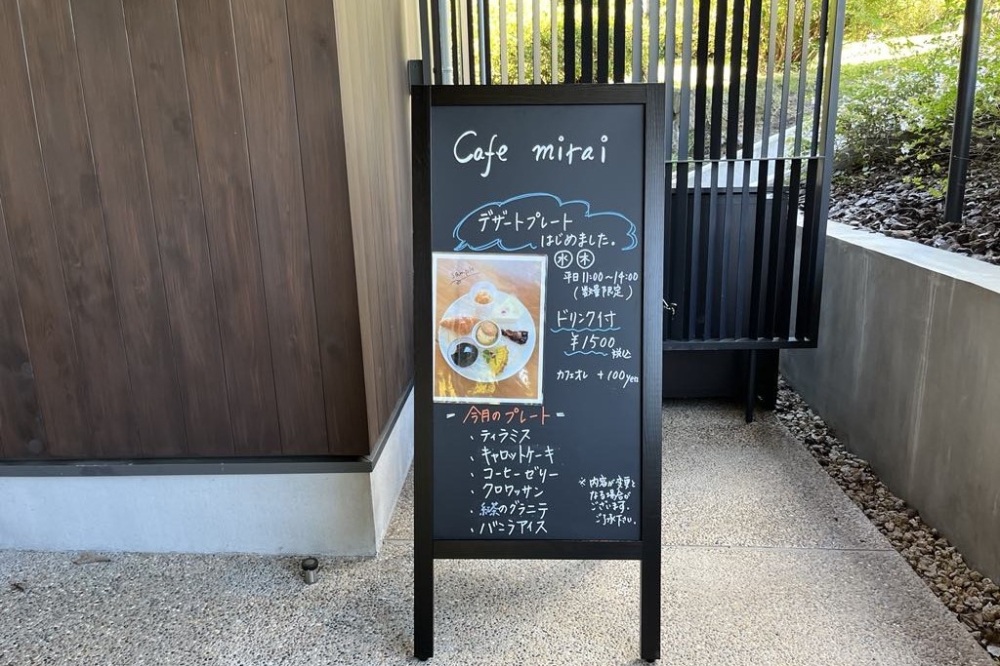 Cafe mirai
デザートプレート
はじめました。
水 木
平日 11:00〜14:00
(数量限定)
ドリンク付
¥1500 税込
カフェオレ +100yen
- 今月のプレート -
、ティラミス
、キャロットケーキ
、コーヒーゼリー
、クロワッサン
、紅茶のグラニテ
、バニラアイス
※内容が変更と
なる場合が
ございます。
ご了承下さい。